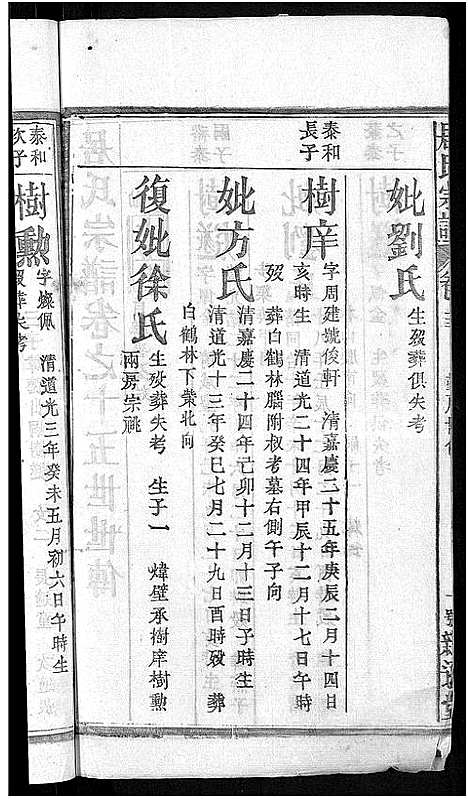 妣劉氏
生歿葬俱失考
泰和
長子
樹庠
字周建號俊軒 清嘉慶二十五年庚辰二月十四日
亥時生 清道光二十四年甲辰十二月十七日午時
歿 葬白鶴林腦附叔考墓右側午子向
妣方氏
清嘉慶二十四年己卯十二月十三日子時生
清道光十三年癸巳七月二十九日酉時歿 葬
白鶴林下棠北向
復妣徐氏
生歿葬失考 生子一 煒壁承樹庠樹勲
兩房宗祧
泰和
次子
樹勲
字 佩 清道光三年癸未五月初六日午時生
歿葬失考